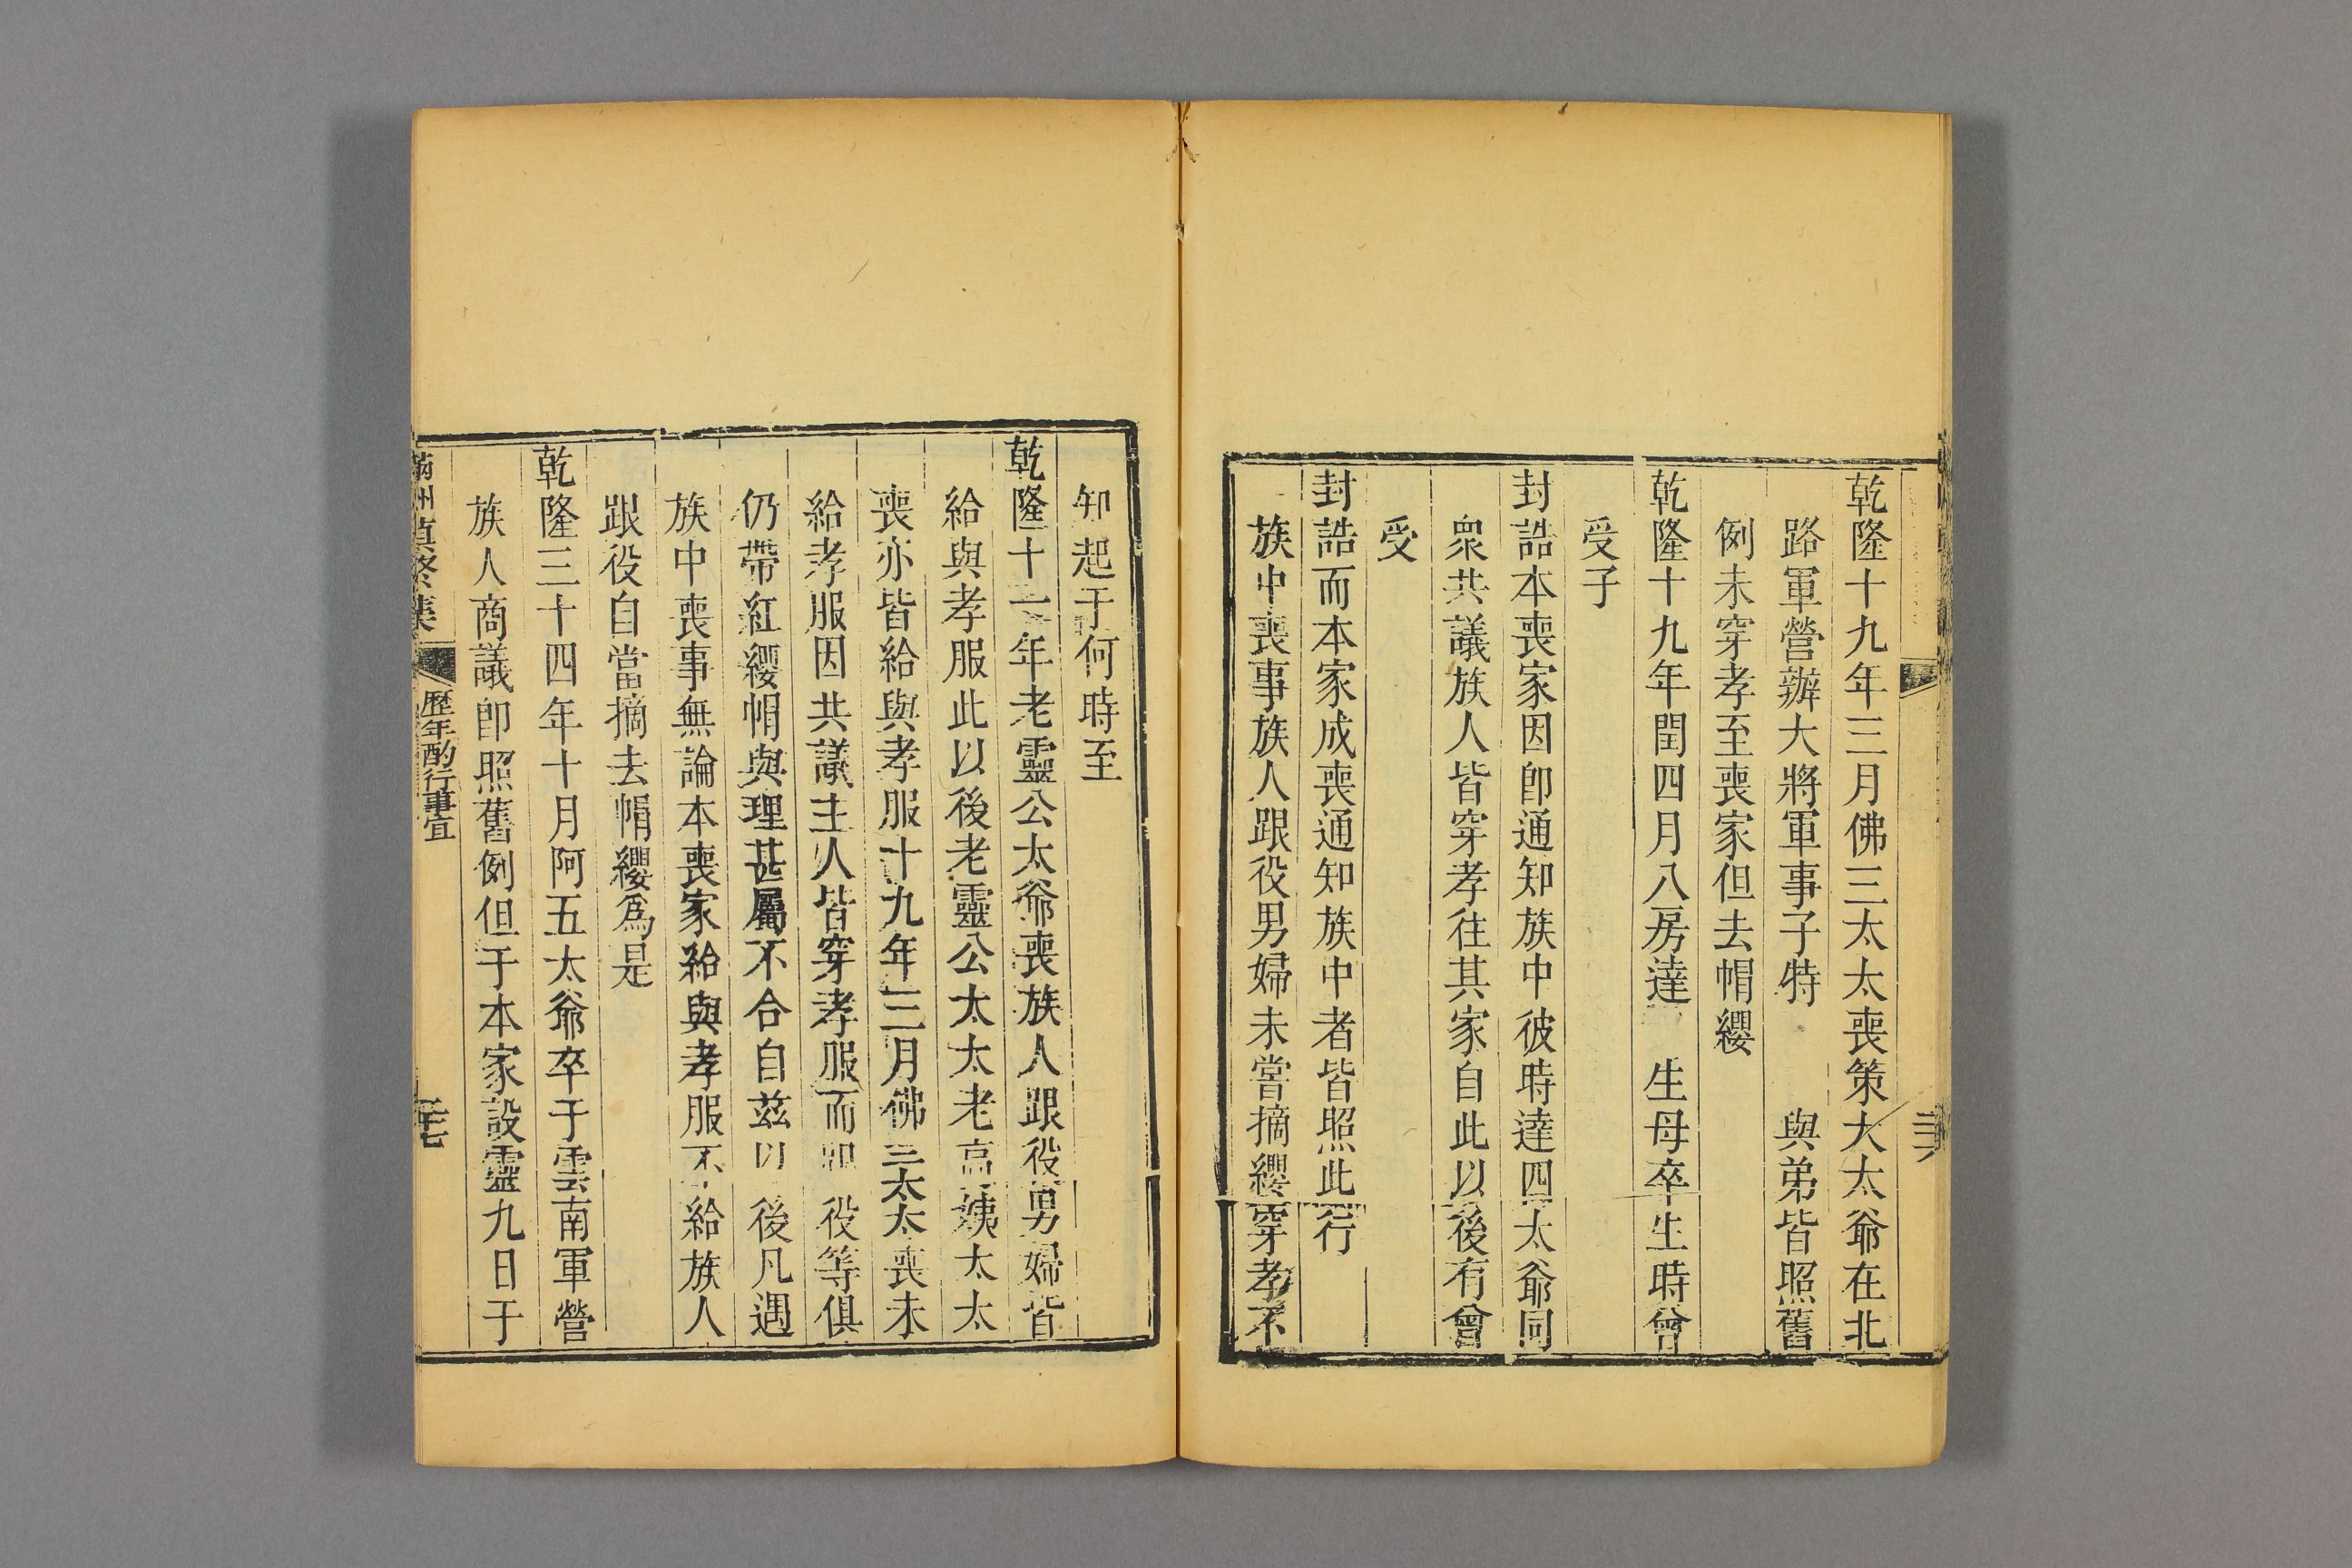 乾隆十九年三月佛三太太喪策大太爺在北
路軍營辦大將軍事子特 與弟皆照舊
例未穿孝至喪家但去帽纓
乾隆十九年閏四月八房達 生母卒生時曾
受子
封誥本喪家因卽通知族中彼時達四太爺同
衆共議族人皆穿孝往其家自此以後有曾
受
封誥而本家成喪通知族中者皆照此行
族中喪事族人跟役男婦未嘗摘纓穿孝不
知起于何時至
乾隆十二年老靈公太爺喪族人跟役男婦皆
給與孝服此以後老靈公太太老高姨太太
喪亦皆給與孝服十九年三月佛三太太喪未
給孝服因共議主人皆穿孝服而 役等俱
仍帶紅纓帽與理甚屬不合自茲以後凡遇
族中喪事無論本喪家給與孝服不給族人
跟役自當摘去帽纓爲是
乾隆三十四年十月阿五太爺卒于雲南軍營
族人商議卽照舊例但于本家設靈九日于
滿洲慎終集 歷年酌行事宜